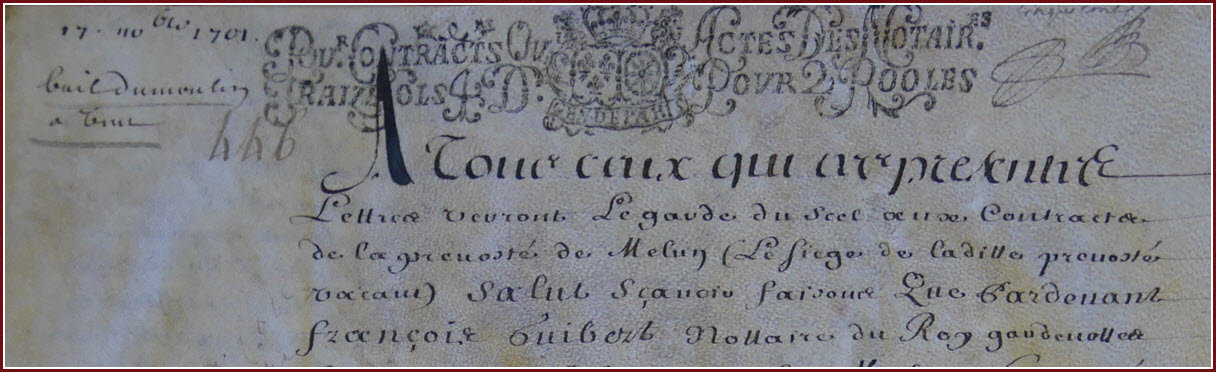 17. no bre 1701.
bail du moulin
446
POUR. CONTRACTS OU ACTES DES NOTAIR.ES
POUR 2 ROOLES
GEN DE PARIS
A Tous ceux qui ces presentes
Lettres verront Le garde du scel aux Contracts
de la prevosté de Melun (Le siege de laditte prevosté
vacant) Salut sçavoir faisons Que Pardevant
françois Guibert Nottaire du Roy gardenottes